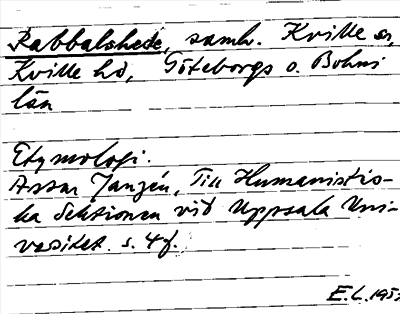 Rabbalshede, samh. Kville sn,
Kville hd, Göteborgs o. Bohus
län
Etymologi.
Assar Janzén, Till Humanistis-
ka Sektionen vid Uppsala Uni-
versitet. s. 4f.
E.L. 195